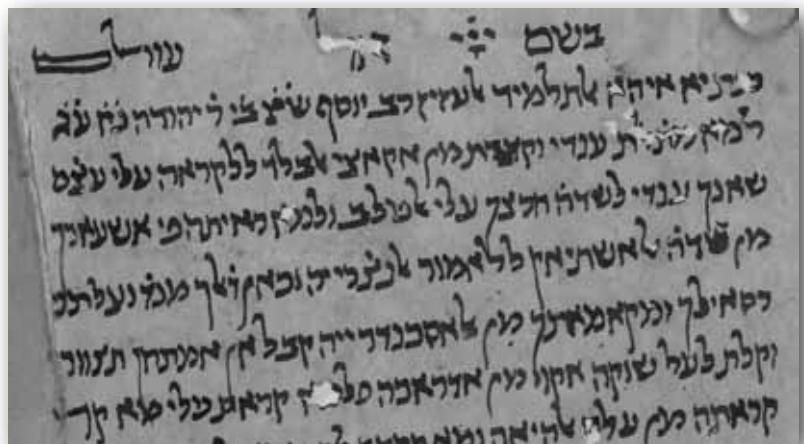 בשם ייי אל עול
איהא אלתלמיד אלעזיז רב יוסף שצ בר יהודה
למא ענדי וקצדת מן אקאצי אלבלאד ללקראה עלי עצ̇ם
שאנך ענדי לשדה̈ חרצך עלי אלטלב ולמא ראיתה פי אשעארך
מן שדה̈ אלאשתיאק ללאמור אלנצ̇רייה וכאן ד̇לך מנד̇ וצלתני
רסאילך ומקאמאתך מן אלאסכנדרייה קבל אן אמתחן תצור
וקלת לעל שוקה אקוי מן אדראכה פלמא קראת עלי מא קד
קראתה מן עלם אלהיאה ומא